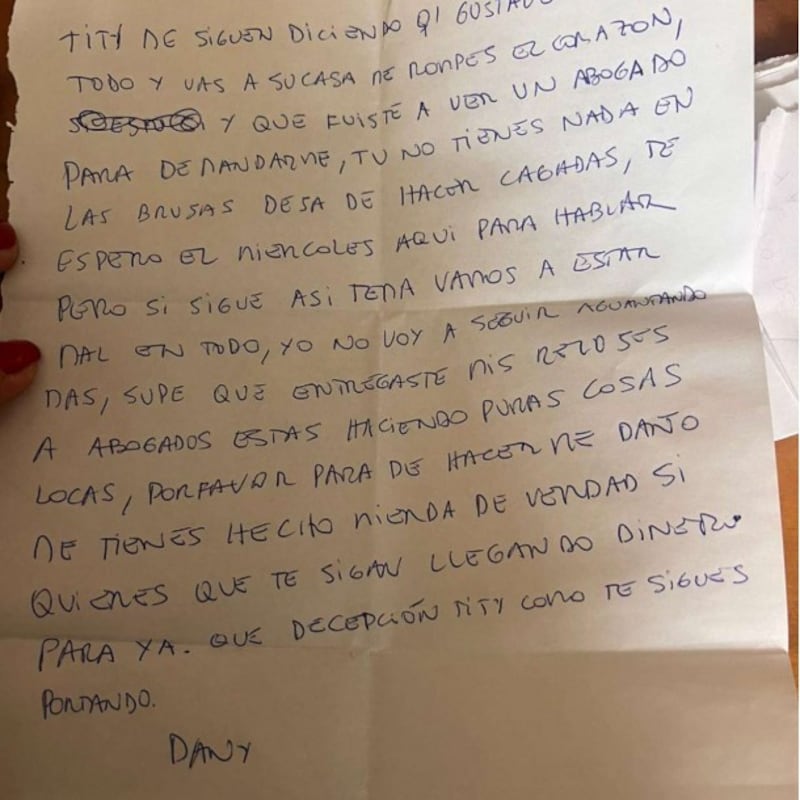 TITY ME SIGUEN DICIENDO Q GUSTAVO
TODO Y VAS A SU CASA ME ROMPES EL CORAZON,
Y QUE FUISTE A VER UN ABOGADO
PARA DEMANDARME, TU NO TIENES NADA EN
LAS BRUSAS DEJA DE HACER CAGADAS, TE
ESPERO EL MIERCOLES AQUI PARA HABLAR
PERO SI SIGUE ASI TEMA VAMOS A ESTAR
MAL EN TODO, YO NO VOY A SEGUIR AGUANTANDO
MAS, SUPE QUE ENTREGASTE MIS RELOJES
A ABOGADOS ESTAS HACIENDO PURAS COSAS
LOCAS, PORFAVOR PARA DE HACERME DAÑO
ME TIENES HECHO MIERDA DE VERDAD SI
QUIERES QUE TE SIGAN LLEGANDO DINERO
PARA YA. QUE DECEPCIÓN TITY COMO TE SIGUES
PORTANDO.
DANY